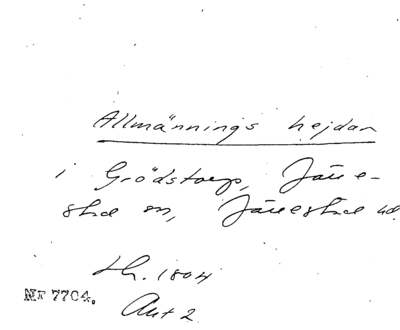 Allmännings hejdan
i Grödstorp, Järre-
stad sn, Järrestad hd.
Lh. 1804
Nr 7704.
Akt 2